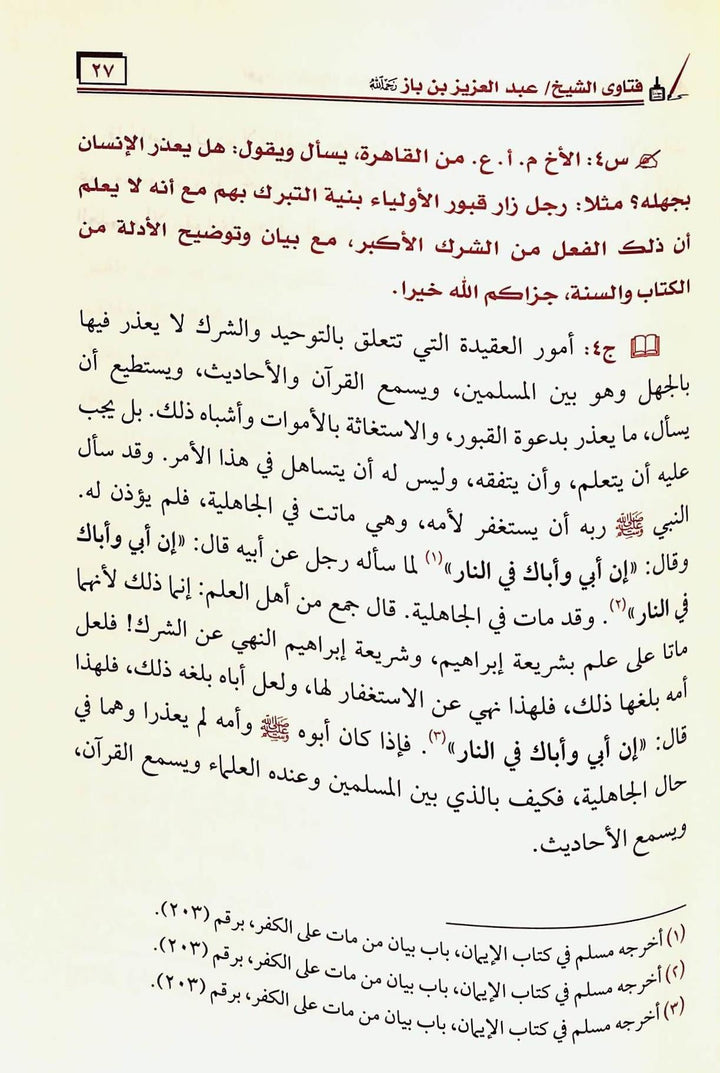 فتاوى الشيخ/ عبد العزيز بن باز رحمه الله
٢٧
س٤: الأخ م. أ. ع. من القاهرة، يسأل ويقول: هل يعذر الإنسان
بجهله؟ مثلا: رجل زار قبور الأولياء بنية التبرك بهم مع أنه لا يعلم
أن ذلك الفعل من الشرك الأكبر، مع بيان وتوضيح الأدلة من
الكتاب والسنة، جزاكم الله خيرا.
ج٤: أمور العقيدة التي تتعلق بالتوحيد والشرك لا يعذر فيها
بالجهل وهو بين المسلمين، ويسمع القرآن والأحاديث، ويستطيع أن
يسأل، ما يعذر بدعوة القبور، والاستغاثة بالأموات وأشباه ذلك. بل يجب
عليه أن يتعلم، وأن يتفقه، وليس له أن يتساهل في هذا الأمر. وقد سأل
النبي ﷺ ربه أن يستغفر لأمه، وهي ماتت في الجاهلية، فلم يؤذن له.
وقال: «إن أبي وأباك في النار»(١) لما سأله رجل عن أبيه قال: «إن أبي وأباك
في النار»(٢). وقد مات في الجاهلية. قال جمع من أهل العلم: إنما ذلك لأنهما
ماتا على علم بشريعة إبراهيم، وشريعة إبراهيم النهي عن الشرك! فلعل
أمه بلغها ذلك، فلهذا نهي عن الاستغفار لها، ولعل أباه بلغه ذلك، فلهذا
قال: «إن أبي وأباك في النار»(٣). فإذا كان أبوه ﷺ وأمه لم يعذرا وهما في
حال الجاهلية، فكيف بالذي بين المسلمين وعنده العلماء ويسمع القرآن،
ويسمع الأحاديث.
(١) أخرجه مسلم في كتاب الإيمان، باب بيان من مات على الكفر، برقم (٢٠٣).
(٢) أخرجه مسلم في كتاب الإيمان، باب بيان من مات على الكفر، برقم (٢٠٣).
(٣) أخرجه مسلم في كتاب الإيمان، باب بيان من مات على الكفر، برقم (٢٠٣).